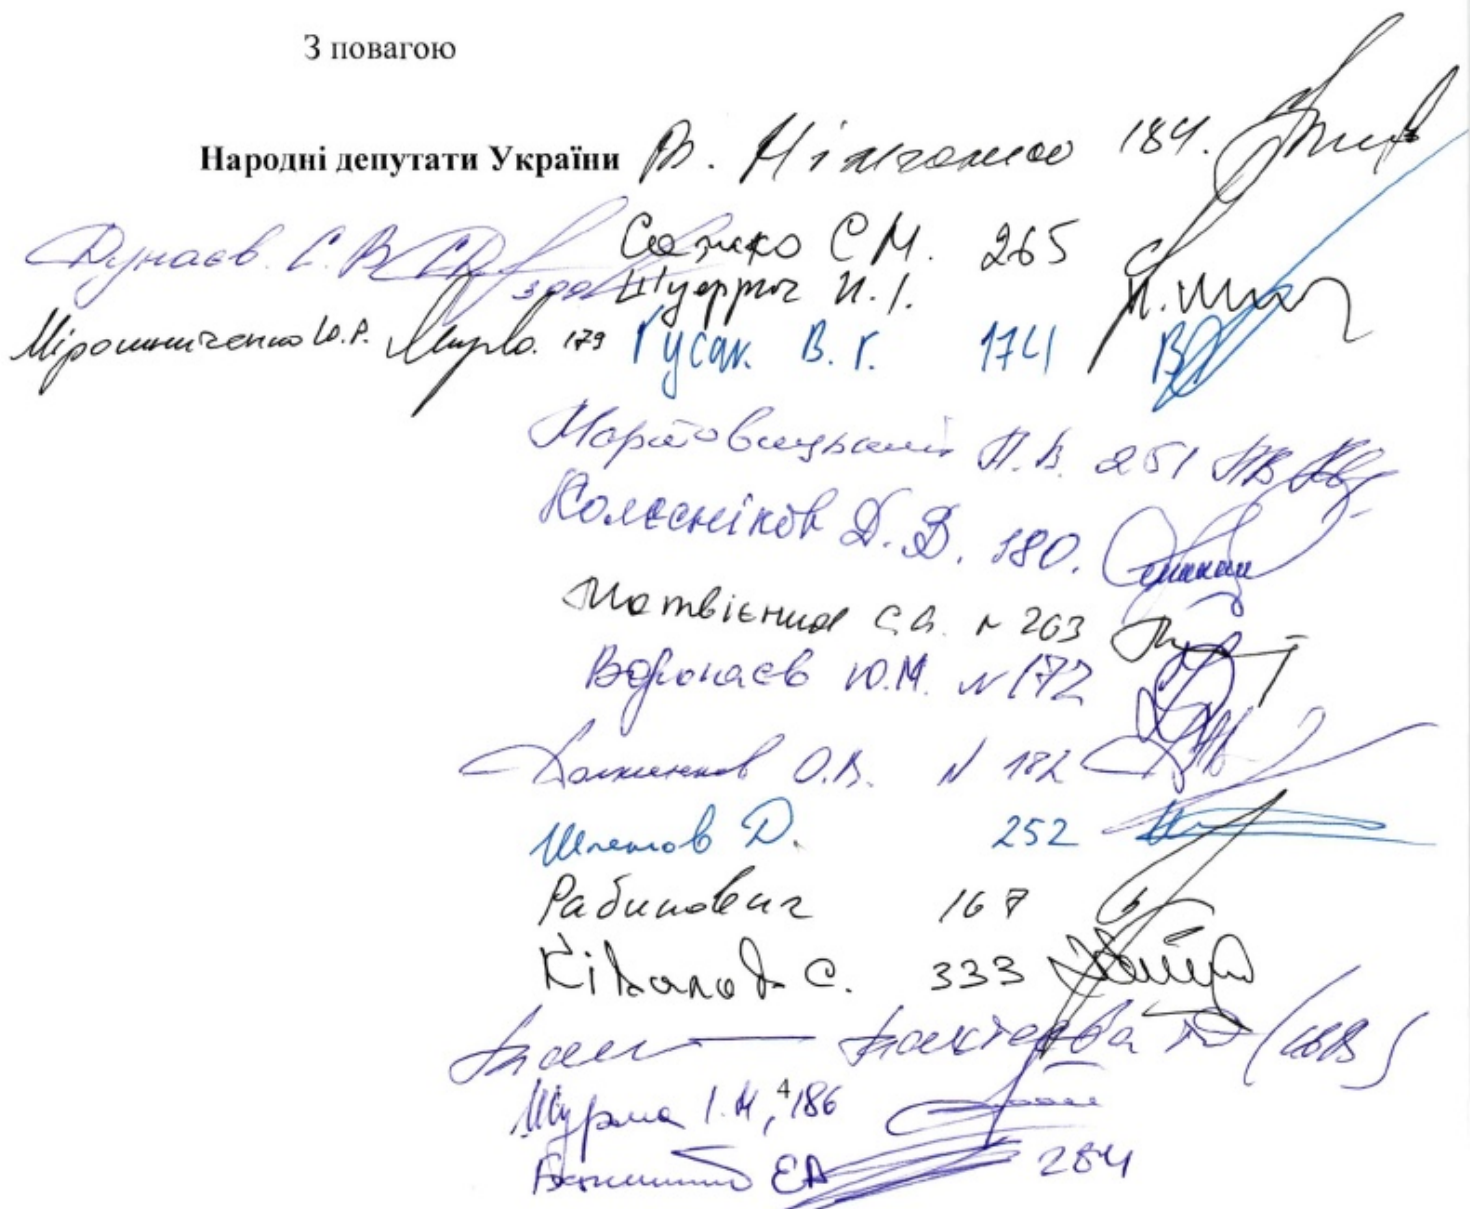 З повагою
Народні депутати України В. Німченко 184.
Дунаєв. С. В. Сажко С М. 265
Шуфрич Н. І.
Мірошниченко Ю. Р. 179 Гусак В. Г. 174
Мартовицький А. В. 251
Колєсніков Д. В. 180.
Матвієнков С. А. N 263
Воропаєв Ю. М. N 172
Долженков О. В. N 182
Шпенов Д. 252
Рабинович 167
Ківалов С. 333
Бахтеєва Т
4
Шурма І. М, 186
284